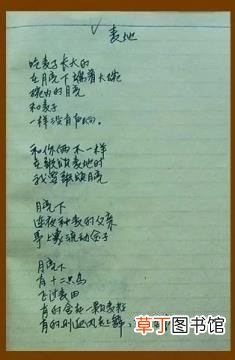 麦地
吃麦子长大的
在月亮下端着大碗
碗内的月亮
和麦子
一样没有声响
和你俩不一样
在歌颂麦地时
我要歌颂月亮
月亮下
连夜种麦的父亲
身上像流动金子
月亮下
有十二只鸟
飞过麦田
有的衔起一颗麦粒
有的则迎风起舞,
草丁图书馆